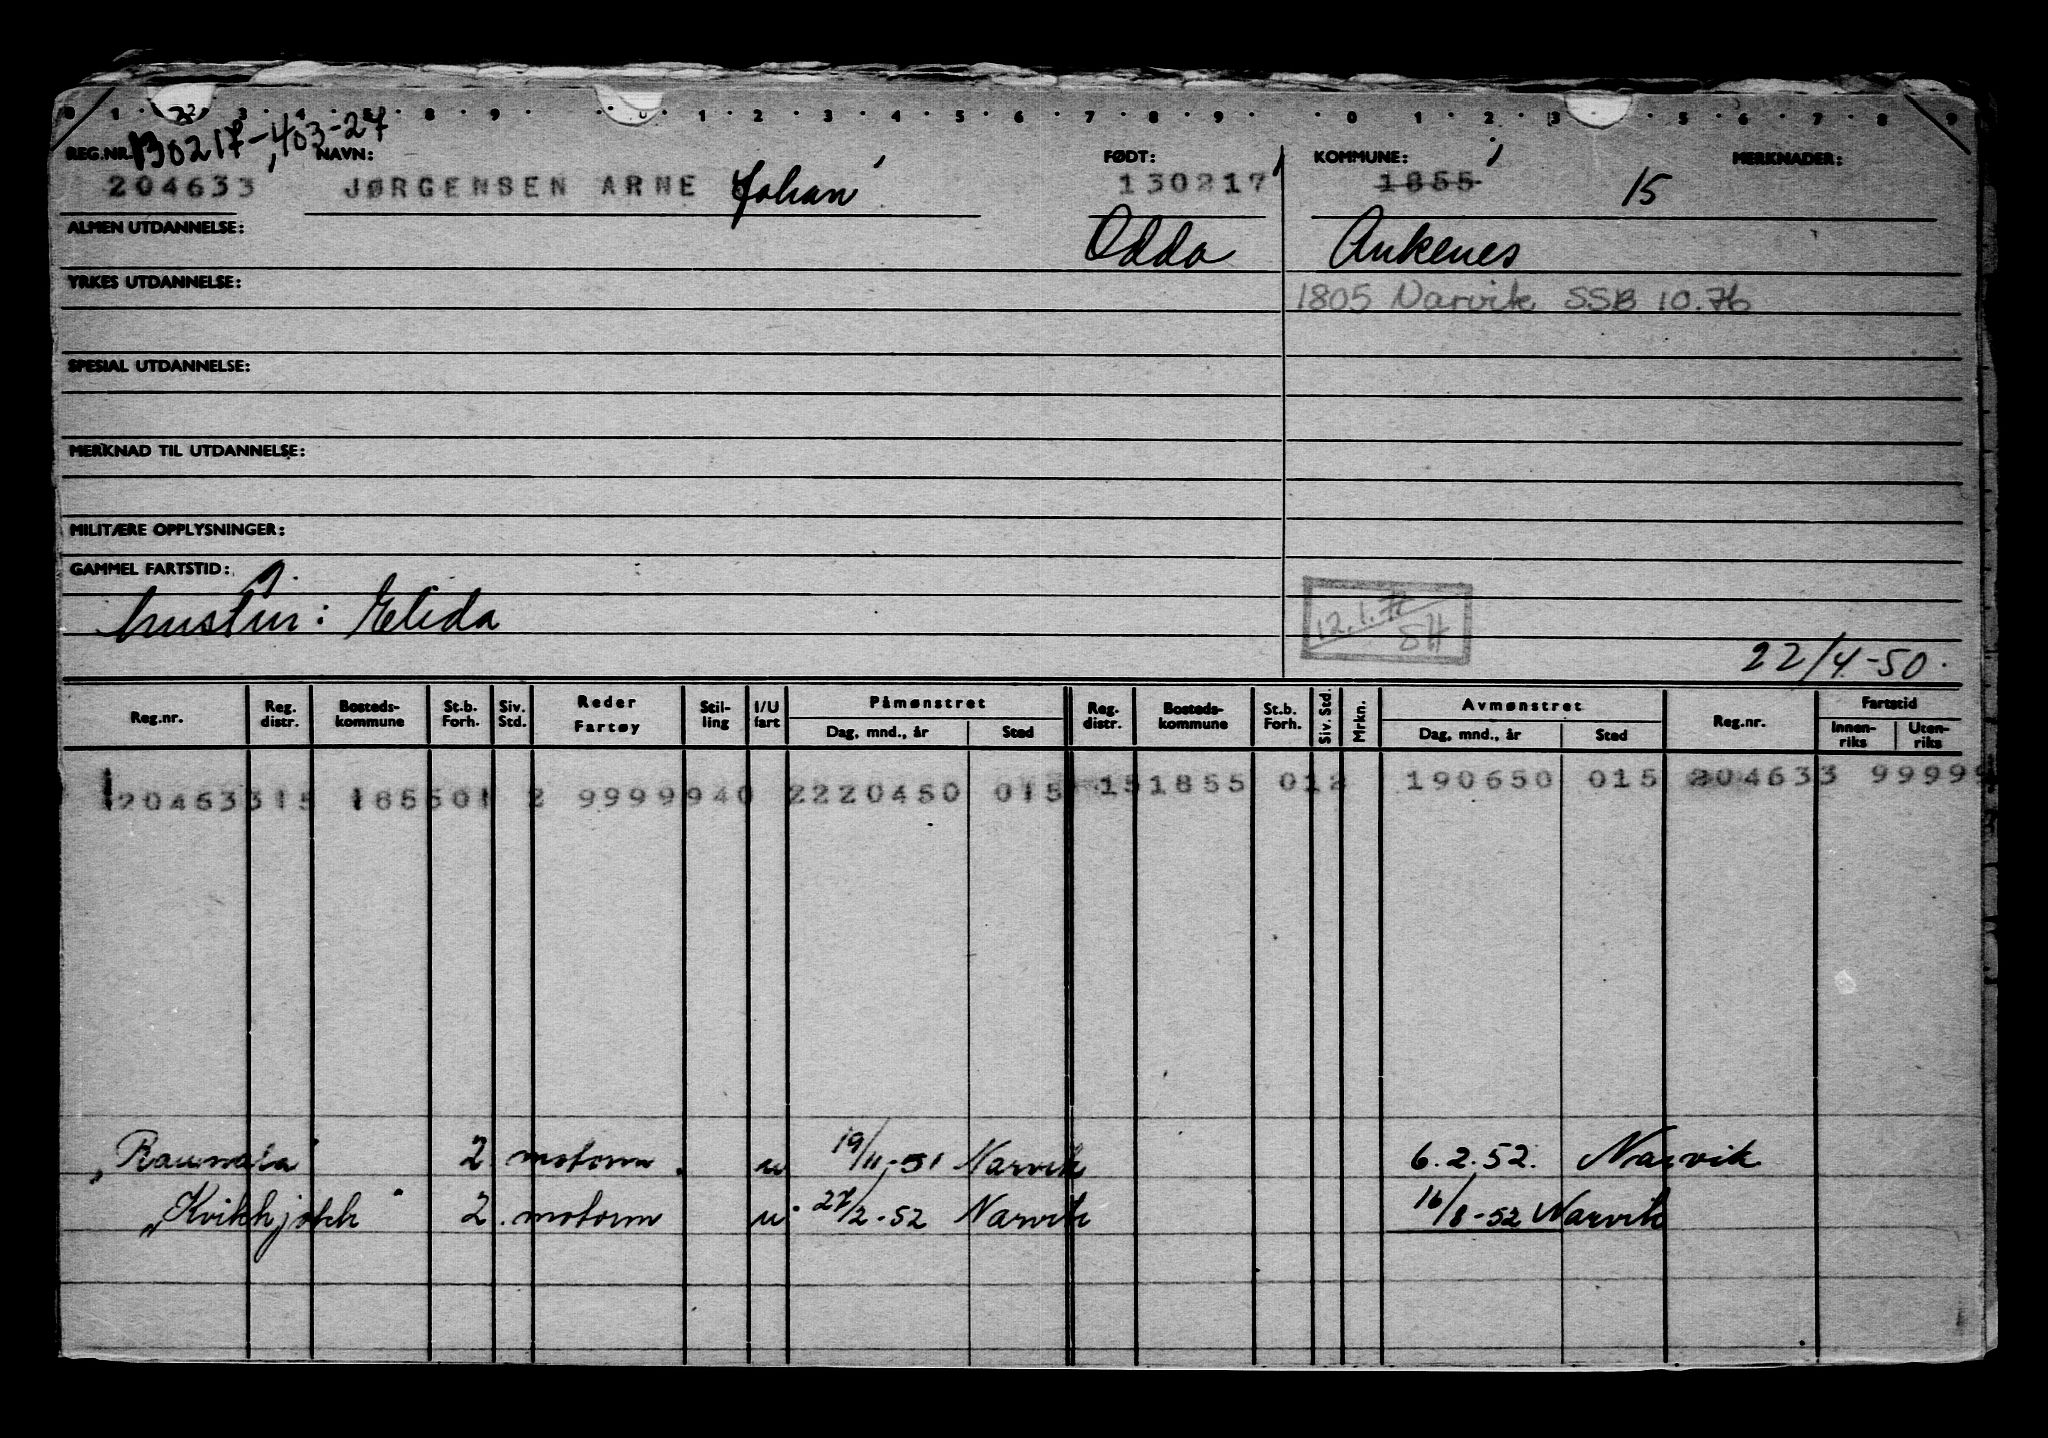 0 1 2 3 4 5 8 9 0 1 2 3 4 5 6 7 8 9 0 1 2 3 5 6 7 8 9
130217-40327
REG.NR. NAVN: FØDT: KOMMUNE: MERKNADER:
204633 JØRGENSEN ARNE Johan 130217 1855 15
ALMEN UTDANNELSE: Odda Ankenes
YRKES UTDANNELSE: 1805 Narvik SSB 10.76
SPESIAL UTDANNELSE:
MERKNAD TIL UTDANNELSE:
MILITÆRE OPPLYSNINGER:
GAMMEL FARTSTID:
hustru: Elida 12.1.77 SH
22/4-50.
Reg.nr. Reg. distr. Bosteds-kommune St.b. Forh. Siv. Std. Reder Fartøy Stil-ling I/U fart Påmønstret Dag, mnd., år Sted Reg. distr. Bosteds-kommune St.b. Forh. Siv. Std. Mrkn. Avmønstret Dag, mnd., år Sted Reg.nr. Fartstid Innen-riks Uten-riks
120463315 185501 2 9999940 2220450 015 151855 012 190650 015 204633 99999
"Raumala" 2 motorm. u 19/11-51 Narvik 6.2.52. Narvik
"Kvikkjokk" 2. motorm u. 27/2-52 Narvik 16/8-52 Narvik